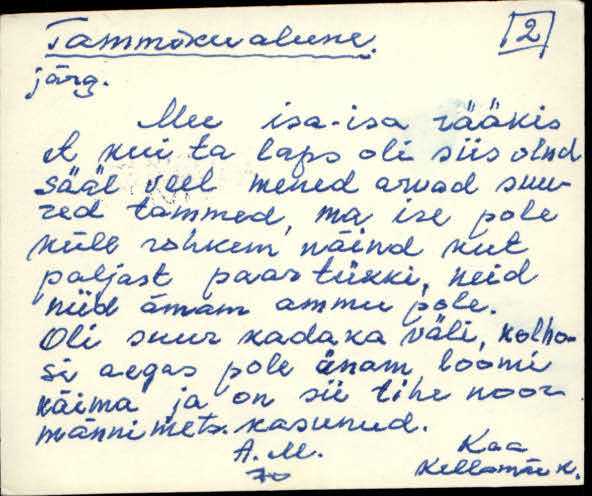 Tammõkualune. 2
järg.
Mu isa-isa rääkis
et kui ta laps oli siis olnd
sääl veel mened arvad suu-
red tammed, ma ise pole
küll rohkem näind kut
paljast paar tükki, neid
niid ämam ammu pole.
Oli suur kadaka väli, kolho-
si aegas pole änam loomi
käima ja on sii tihe noor
männimets kasunud.
A. M. Kaa
Kellamäe k.